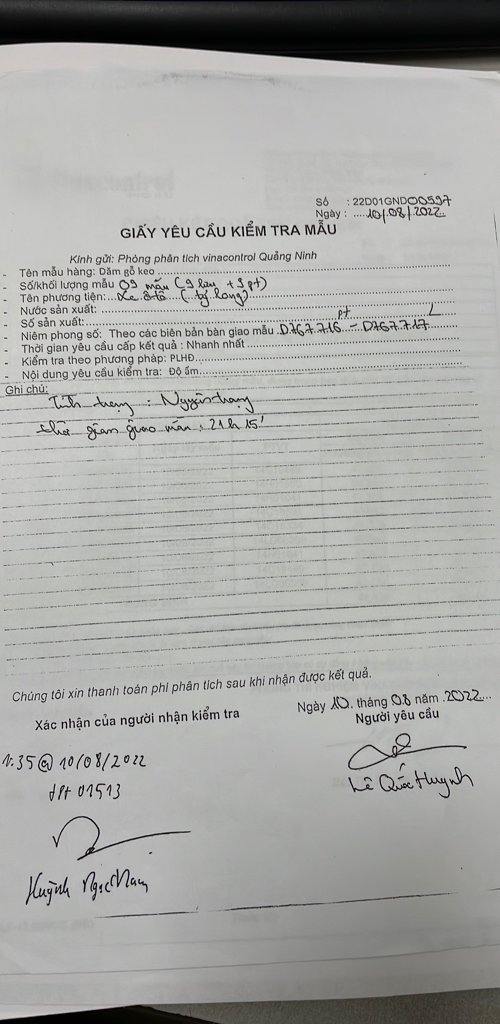 Số : 22D01GND00597
Ngày : ....10/08/2022..
GIẤY YÊU CẦU KIỂM TRA MẪU
Kính gửi: Phòng phân tích vinacontrol Quảng Ninh
- Tên mẫu hàng: Dăm gỗ keo
- Số/khối lượng mẫu 09 mẫu (9 lưu + 9 pt)
- Tên phương tiện: Xe ô tô (tự long)
- Nước sản xuất:
- Số sản xuất: pt L
- Niêm phong số: Theo các biên bản bàn giao mẫu D767.716 - D767.717
- Thời gian yêu cầu cấp kết quả : Nhanh nhất
- Kiểm tra theo phương pháp: PLHĐ
- Nội dung yêu cầu kiểm tra: Độ ẩm
Ghi chú:
Tình trạng : Nguyên trạng
thời gian giao mẫu : 21h 15'
Chúng tôi xin thanh toán phí phân tích sau khi nhận được kết quả.
Xác nhận của người nhận kiểm tra
Ngày 10. tháng 08 năm .2022...
Người yêu cầu
35@ 10/08/2022
01513
Lê Quốc Huynh
Huỳnh Ngọc Nam